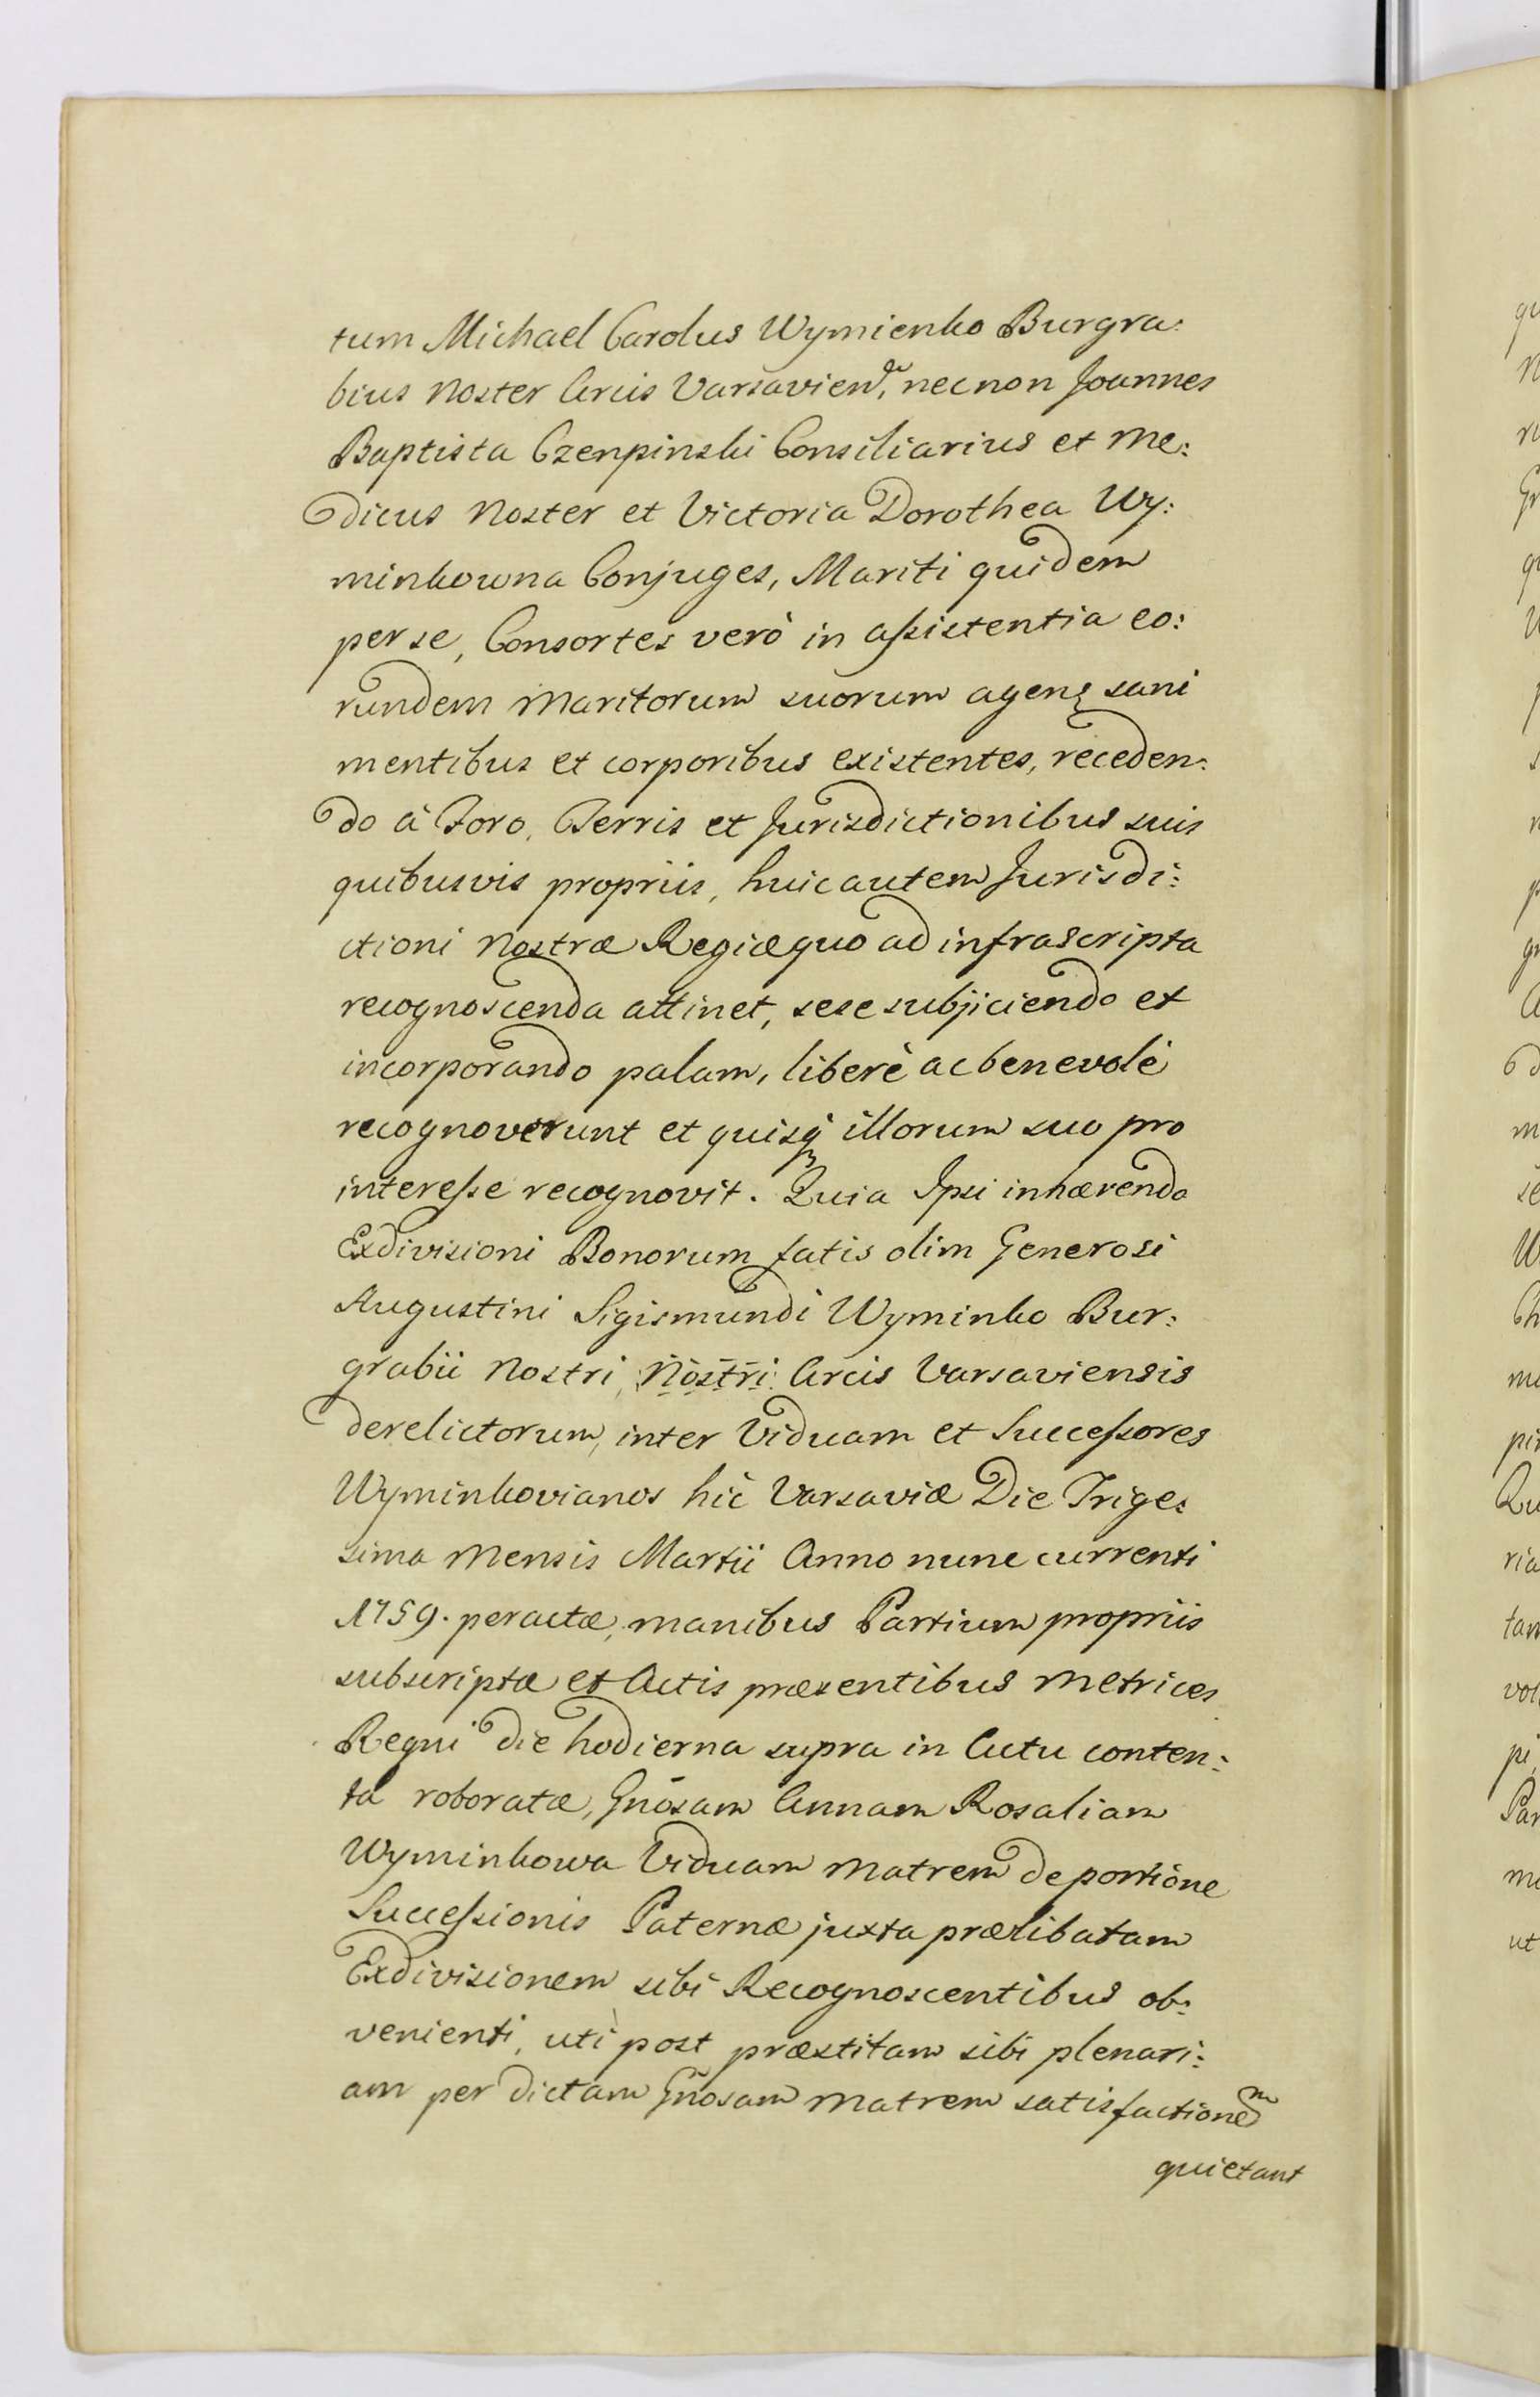 tum Michael Carolus Wymienko Burgra:
bius Noster Arcis Varsavien, necnon Joannes
Baptista Czenpinski Consiliarius et Me:
dicus Noster et Victoria Dorothea Wy:
minkowna Conjuges, Mariti quidem
per se, Consortes verò in assistentia eo:
rundem Maritorum suorum agenę sani
mentibus et corporibus existentes, receden:
do à Foro, Terris et Jurisdictionibus suis
quibusvis propriis, huic autem Jurisdi:
ctioni Nostræ Regiæ quo ad infrascripta
recognoscenda attinet, sese subjiciendo et
incorporando palam, liberè ac benevolè
recognoverunt et quisq illorum suo pro
interesse recognovit. Quia Ipsi inhærendo
Exdivisioni Bonorum fatis olim Generosi
Augustini Sigismundi Wyminko Bur:
grabii Nostri, Nostri Arcis Varsaviensis
derelictorum, inter Viduam et Successores
Wyminkovianos hic Varsaviæ Die Trige:
sima Mensis Martii Anno nunc currenti
1759. peractæ, manibus Partium propriis
subscriptæ et Actis præsentibus Metrices
Regni die hodierna supra in Actu conten:
ta roboratæ, Gnōsam Annam Rosaliam
Wyminkowa Viduam Matrem de portione
Successionis Paternæ juxta prælibatam
Exdivisionem sibi Recognoscentibus ob:
venienti, uti post præstitam sibi plenari:
am per dictam Gñosam Matrem satisfactionem
quietant